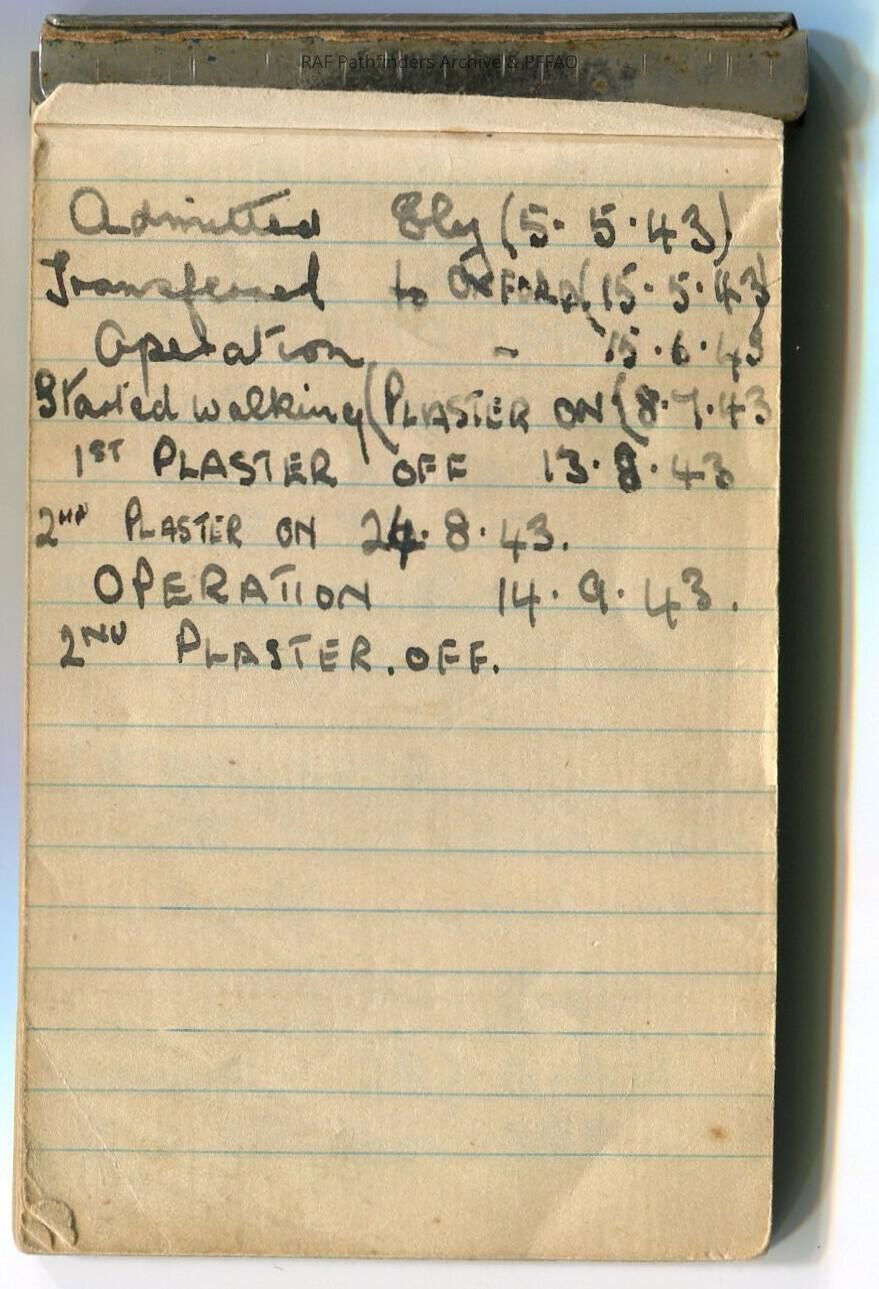 RAF Pathfinders Archive & PFFAO
Admitted Ely (5·5·43)
Transferred to OXFORD (15·5·43)
Operation - 15·6·43
Started walking (PLASTER ON (8·7·43
1ST PLASTER OFF 13·8·43
2ND PLASTER ON 24·8·43.
OPERATION 14·9·43.
2ND PLASTER.OFF.